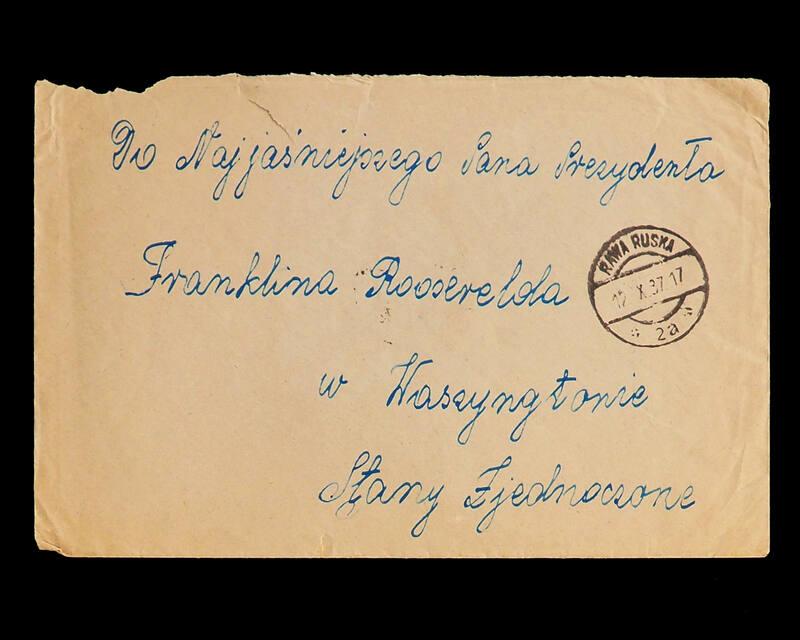 Do Najjaśniejszego Pana Prezydenta
Franklina Rooserelda
RAWA RUSKA
12 X 37 17
2a
w Waszyngtonie
Stany Zjednoczone